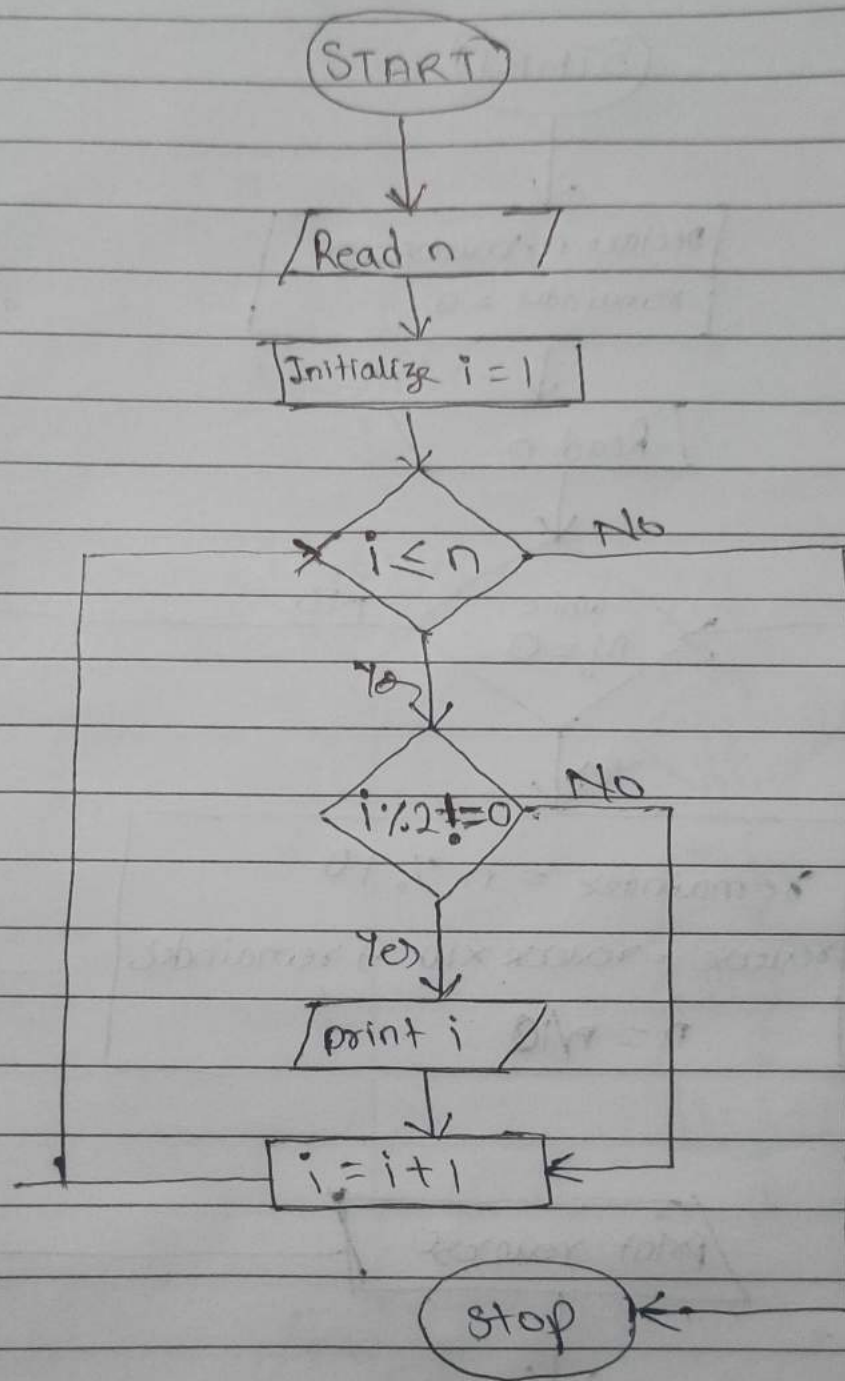 START
Read n
Initialize i = 1
i ≤ n
No
Yes
i%2!=0
No
Yes
print i
i = i + 1
stop